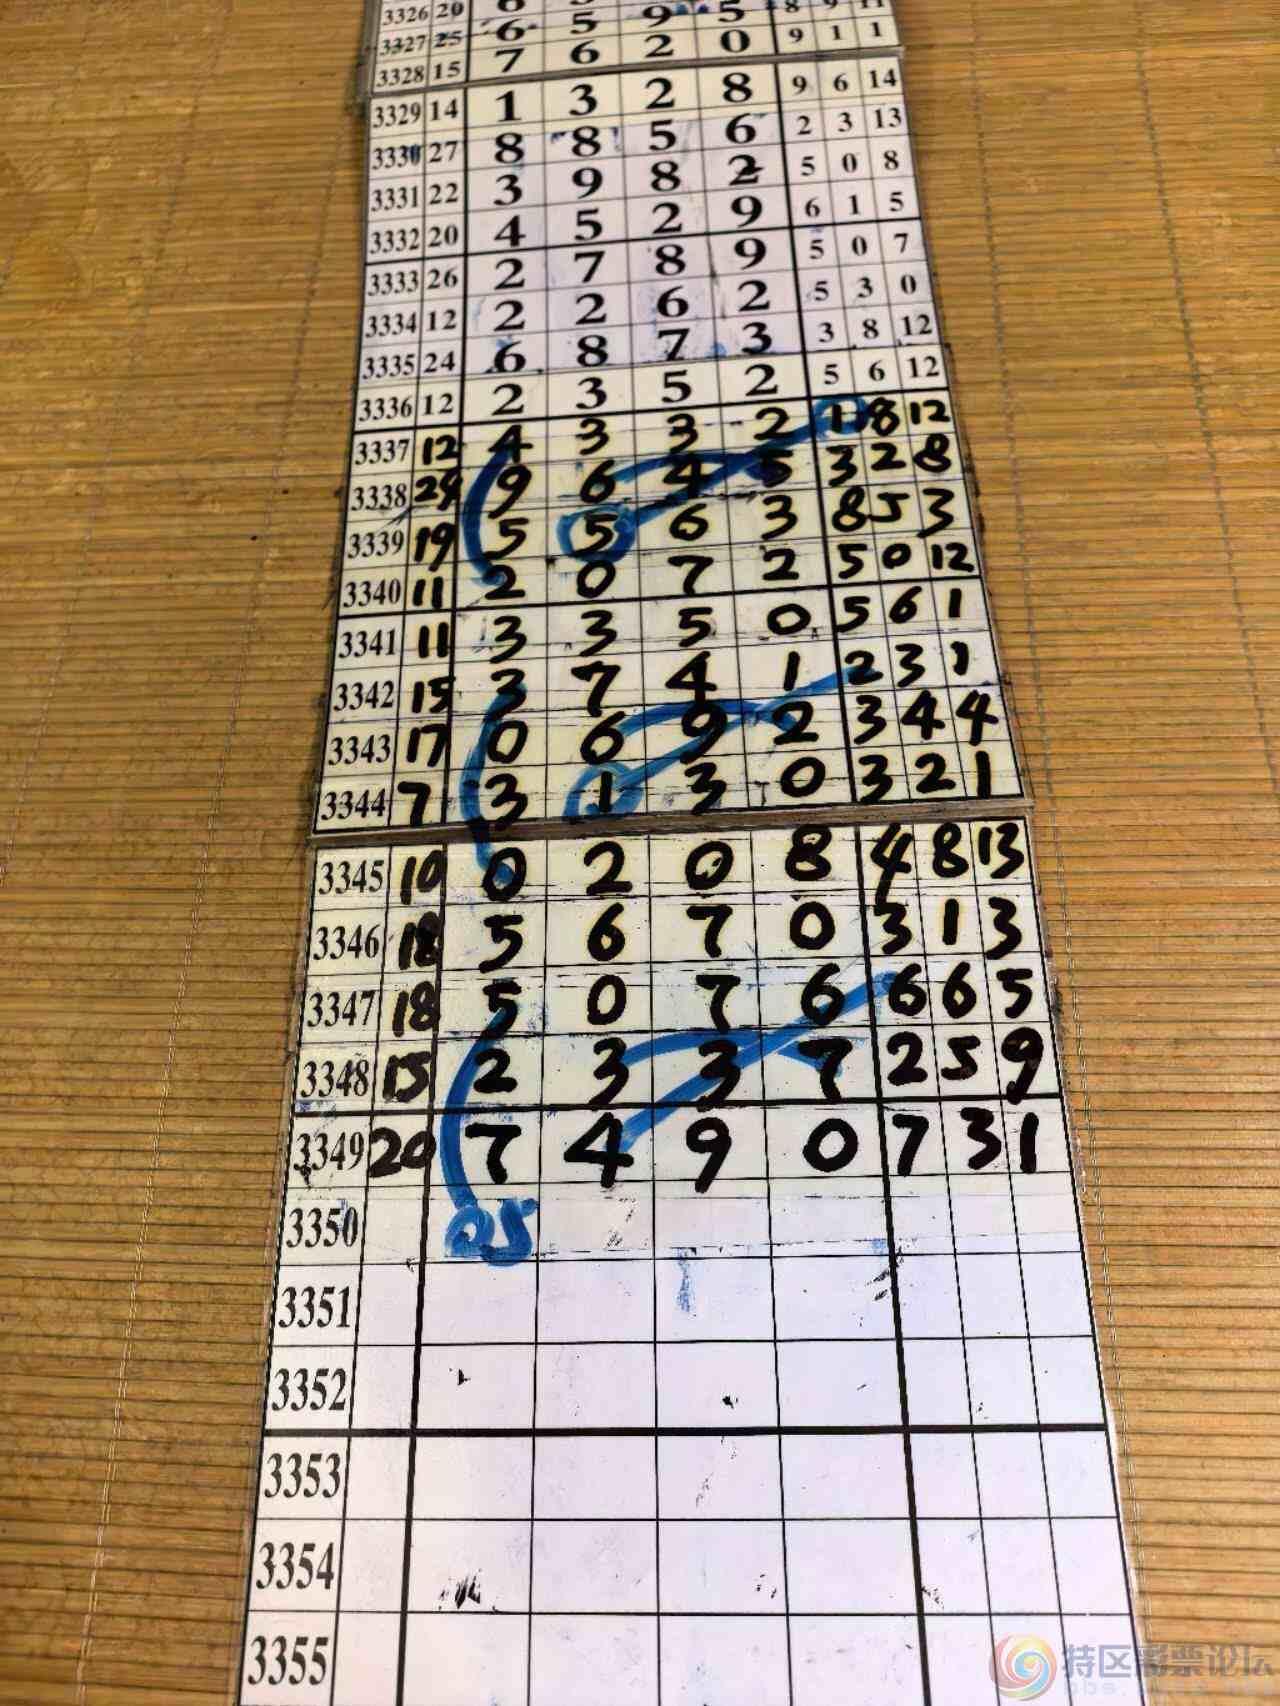 3326 20
3327 25 6 5 9 5 8 9 11
3328 15 7 6 2 0 9 1 1
3329 14 1 3 2 8 9 6 14
3330 27 8 8 5 6 2 3 13
3331 22 3 9 8 2 5 0 8
3332 20 4 5 2 9 6 1 5
3333 26 2 7 8 9 5 0 7
3334 12 2 2 6 2 5 3 0
3335 24 6 8 7 3 3 8 12
3336 12 2 3 5 2 5 6 12
3337 12 4 3 3 2 1 8 12
3338 24 9 6 4 5 3 2 8
3339 19 5 5 6 3 8 5 3
3340 11 2 0 7 2 5 0 12
3341 11 3 3 5 0 5 6 1
3342 15 3 7 4 1 2 3 1
3343 17 0 6 9 2 3 4 4
3344 7 3 1 3 0 3 2 1
3345 10 0 2 0 8 4 8 13
3346 18 5 6 7 0 3 1 3
3347 18 5 0 7 6 6 6 5
3348 15 2 3 3 7 2 5 9
3349 20 7 4 9 0 7 3 1
3350 05
3351
3352
3353
3354
3355
特区彩票论坛